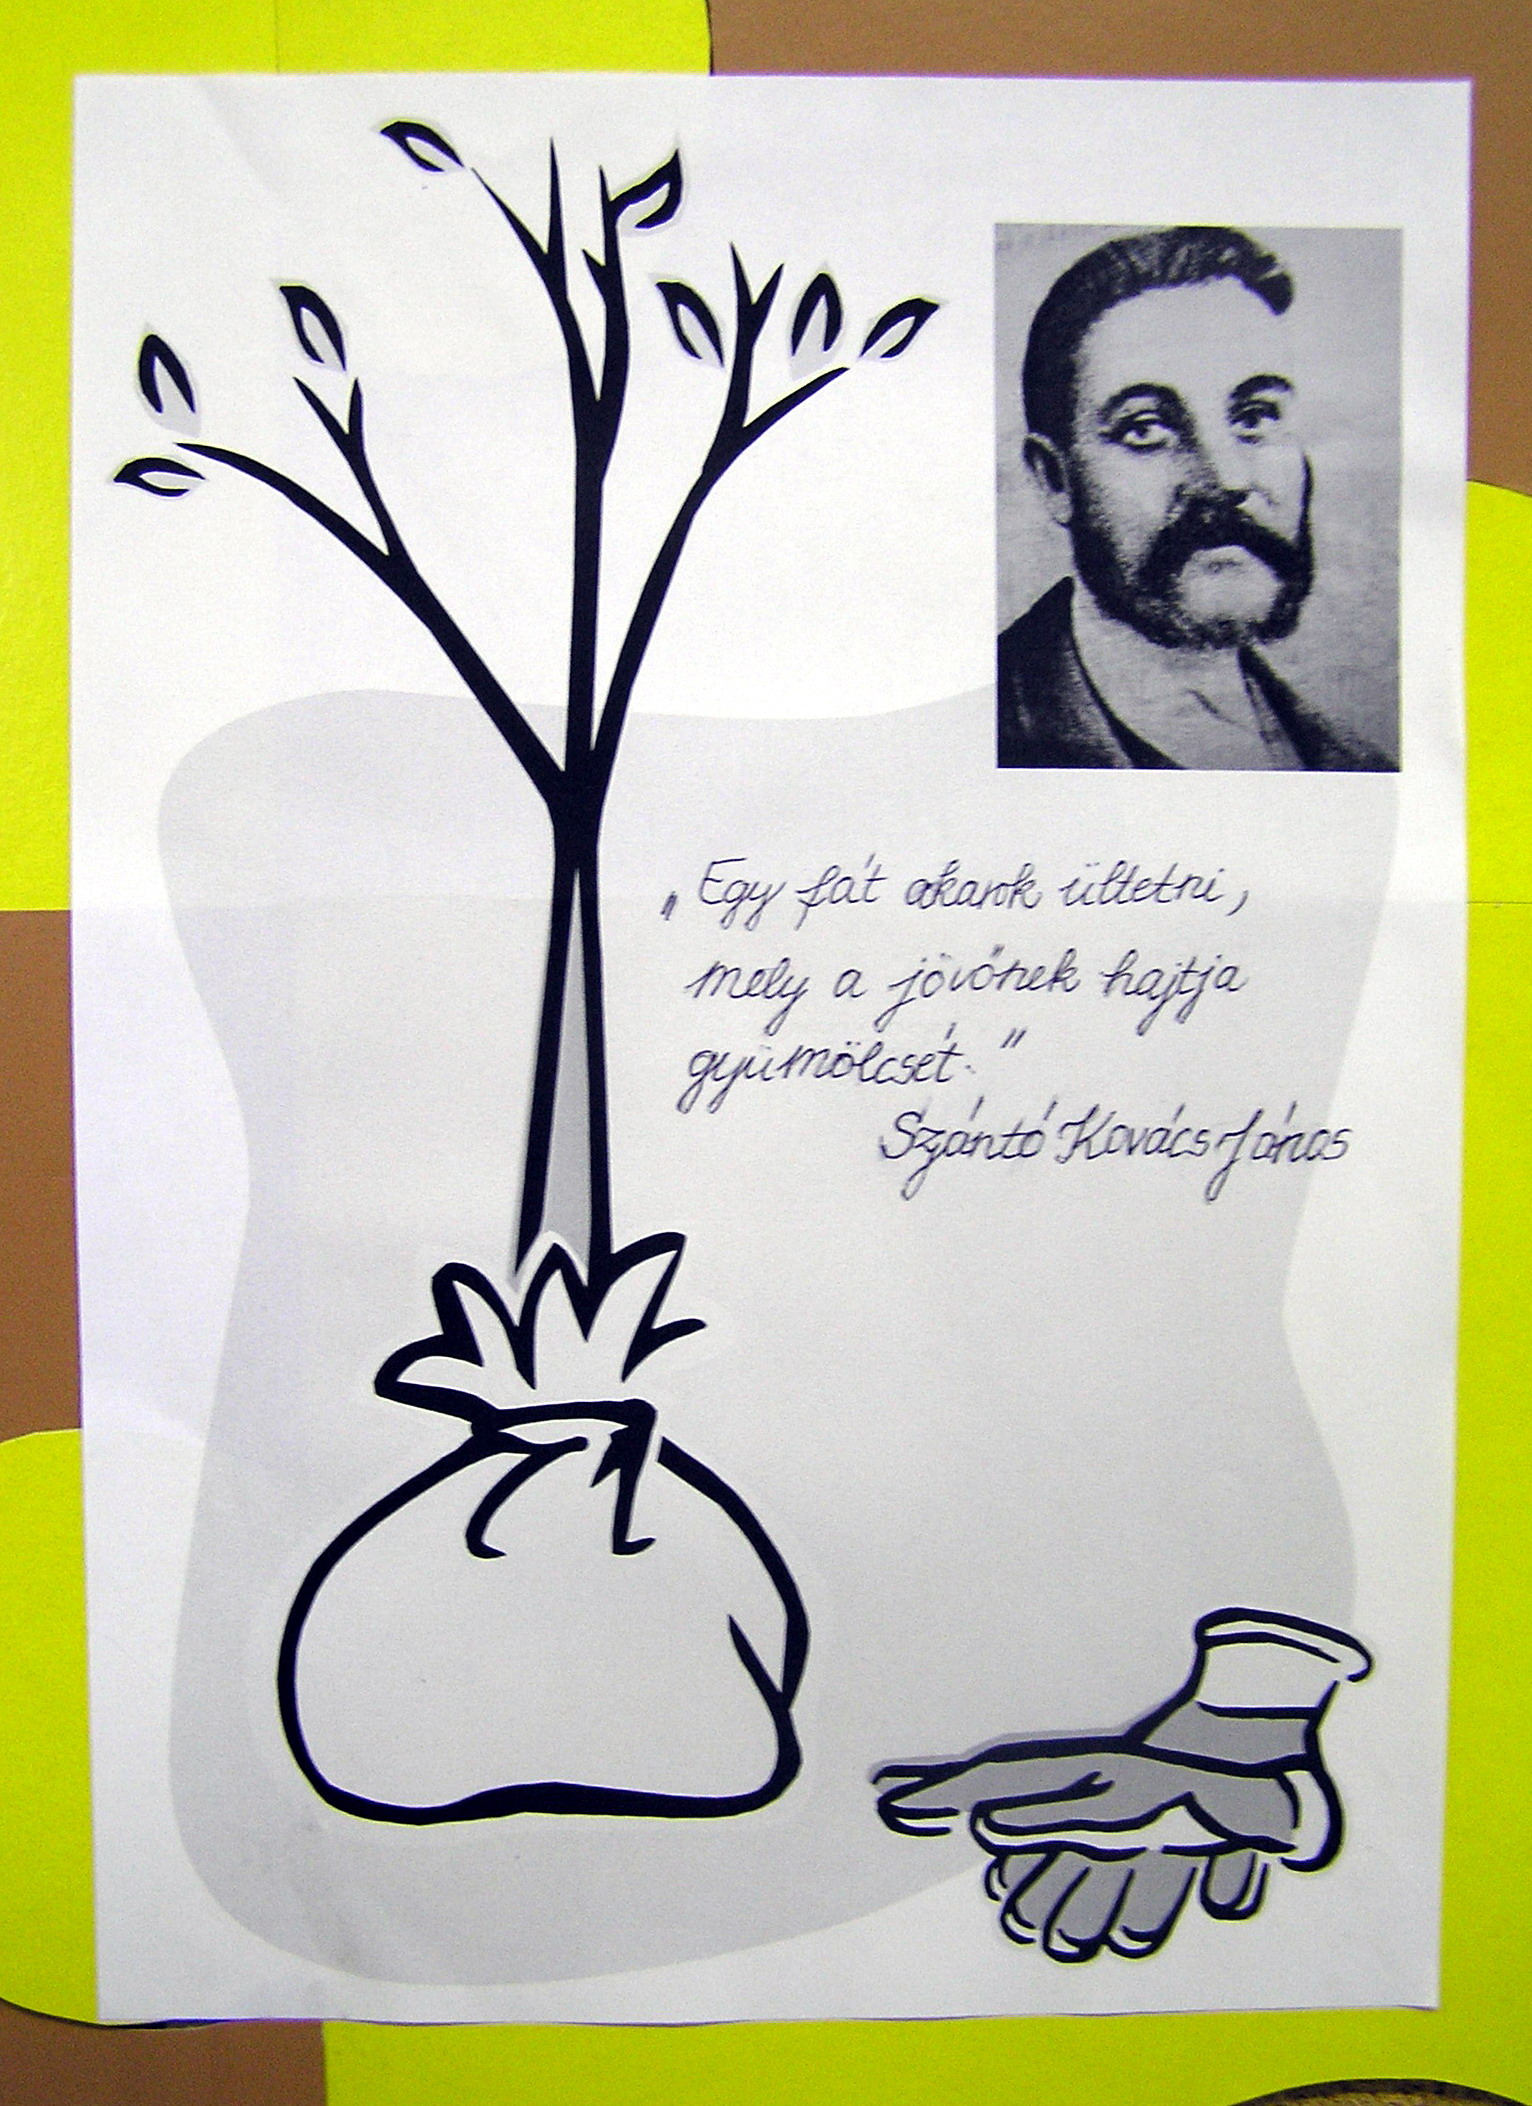 „Egy fát akarok ültetni,
mely a jövőnek hajtja
gyümölcsét."
Szántó Kovács János